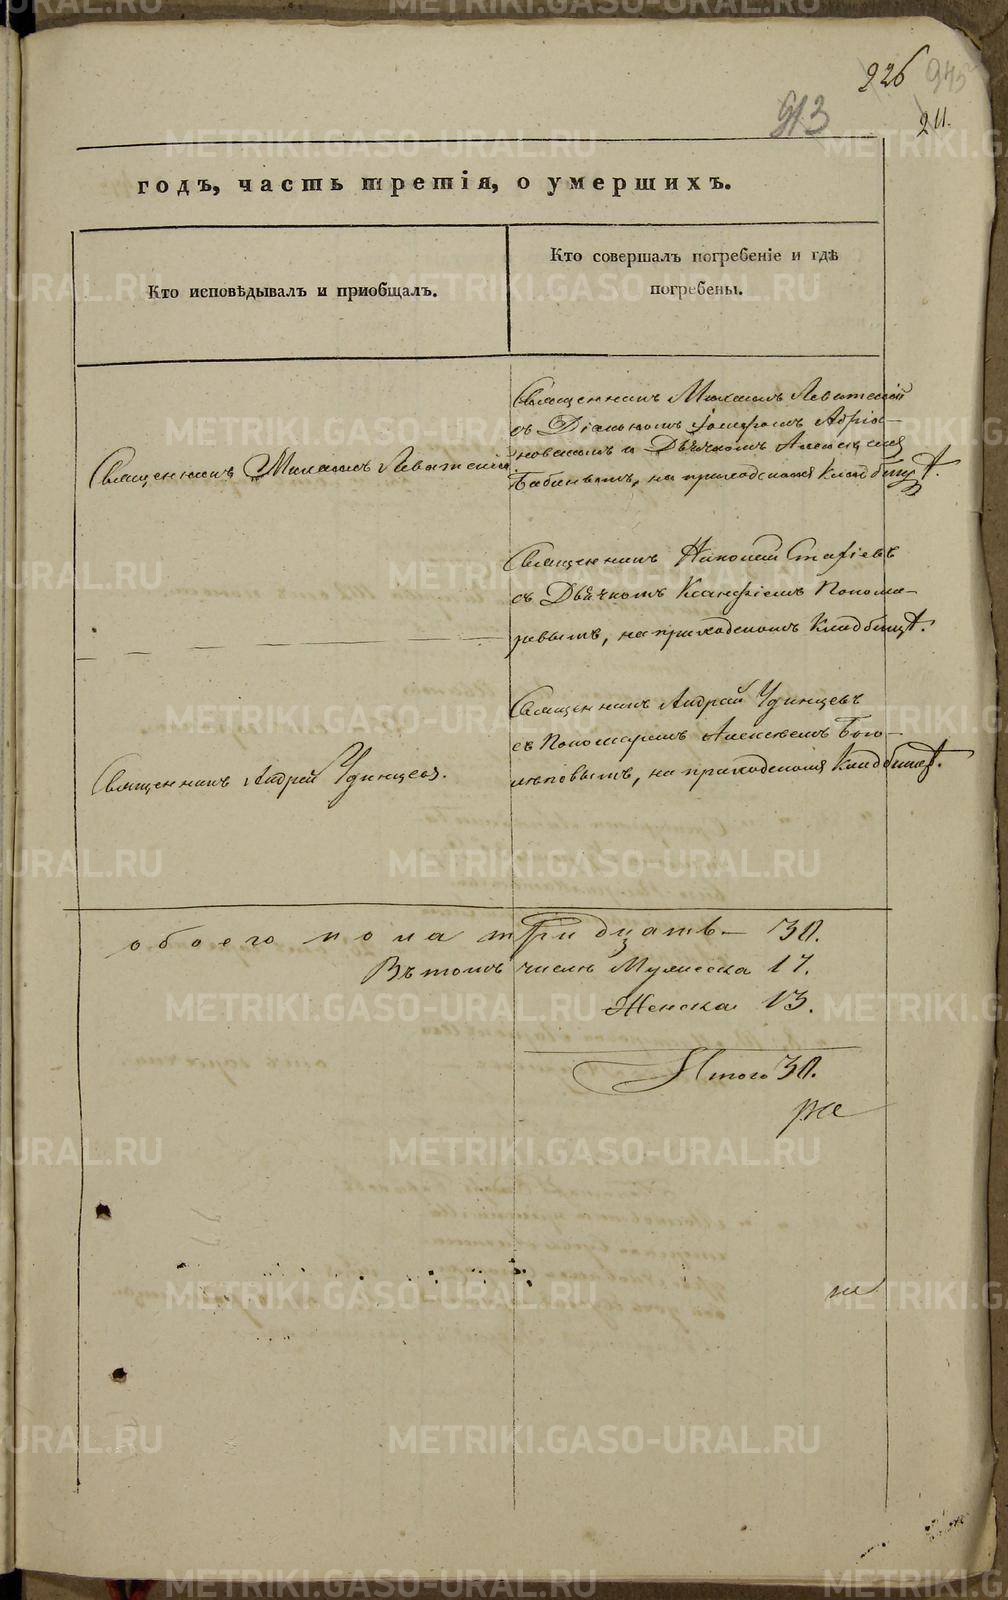 226 945
913 211.
годъ, часть третія, о умершихъ.
Кто исповѣдывалъ и приобщалъ.
Кто совершалъ погребеніе и гдѣ
погребены.
Священникъ Михаилъ Левитскій
Священникъ Михаилъ Левитскій
съ Діакономъ Іосифомъ Адріа-
новскимъ и Дьячкомъ Алексѣемъ
Бабинымъ, на приходскомъ кладбищѣ.
Священникъ Николай Стафіевъ
съ Дьячкомъ Ксанфіемъ Понома-
ревымъ, на приходскомъ Кладбищѣ.
Священникъ Андрей Удинцевъ.
Священникъ Андрей Удинцевъ
съ Пономаремъ Алексѣемъ Бого-
лѣповымъ, на приходскомъ Кладбищѣ.
обоего пола тридцать — 30.
Въ томъ числѣ Мужеска 17.
Женска 13.
Итого 30.
METRIKI.GASO-URAL.RU